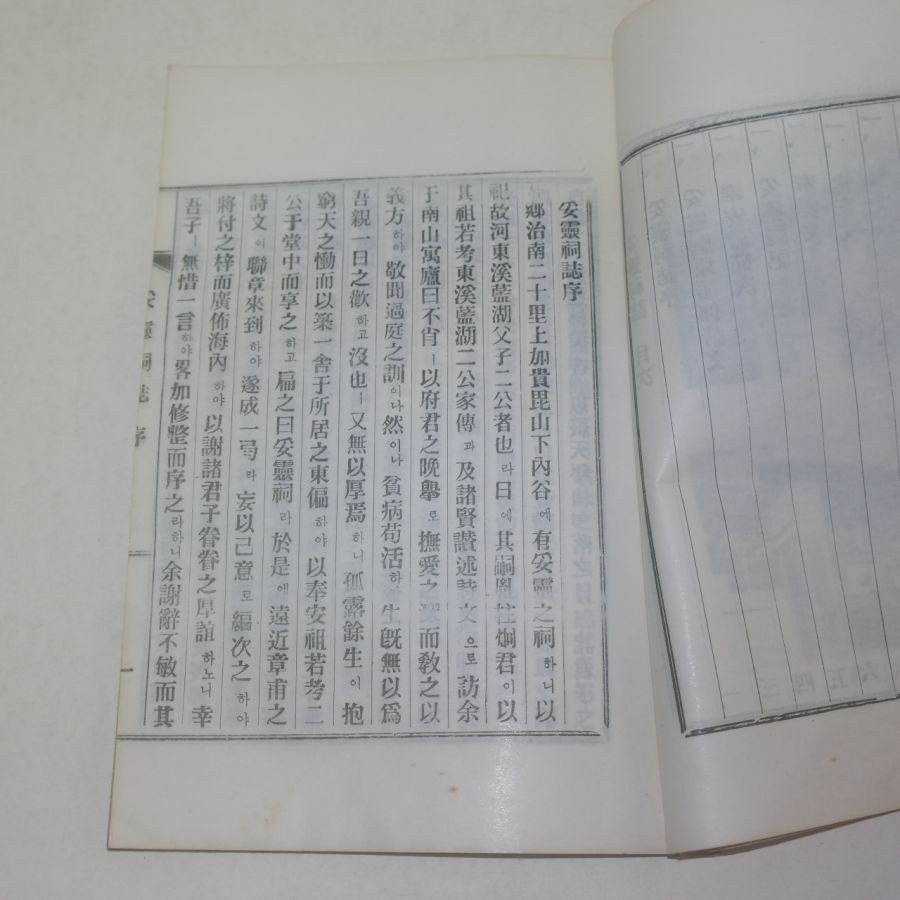 妥靈祠誌序
鄕治南二十里上加貴毘山下內谷에有妥靈之祠하니以
祀故河東溪藍湖父子二公者也라日에其嗣胤柱烱君이以
其祖若考東溪藍湖二公家傳과及諸賢讚述詩文으로訪余
于南山寓廬曰不肖ㅣ以府君之晩擧로撫愛之而敎之以
義方하야敬聞過庭之訓이나然이나貧病苟活하生旣無以爲
吾親一日之歡하고沒也ㅣ又無以厚焉하니孤露餘生이抱
窮天之慟而以築一舍于所居之東偏하야以奉安祖若考二
公于堂中而享之하고扁之曰妥靈祠라於是에遠近章甫之
詩文이聯章來到하야遂成一弓라妄以己意로編次之하야
將付之梓而廣佈海內하야以謝諸君子眷眷之厚誼하노니幸
吾子ㅣ無惜一言하야畧加修整而序之라하니余謝辭不敏而其
妥靈祠誌 序
一
目次
三
四
五
六